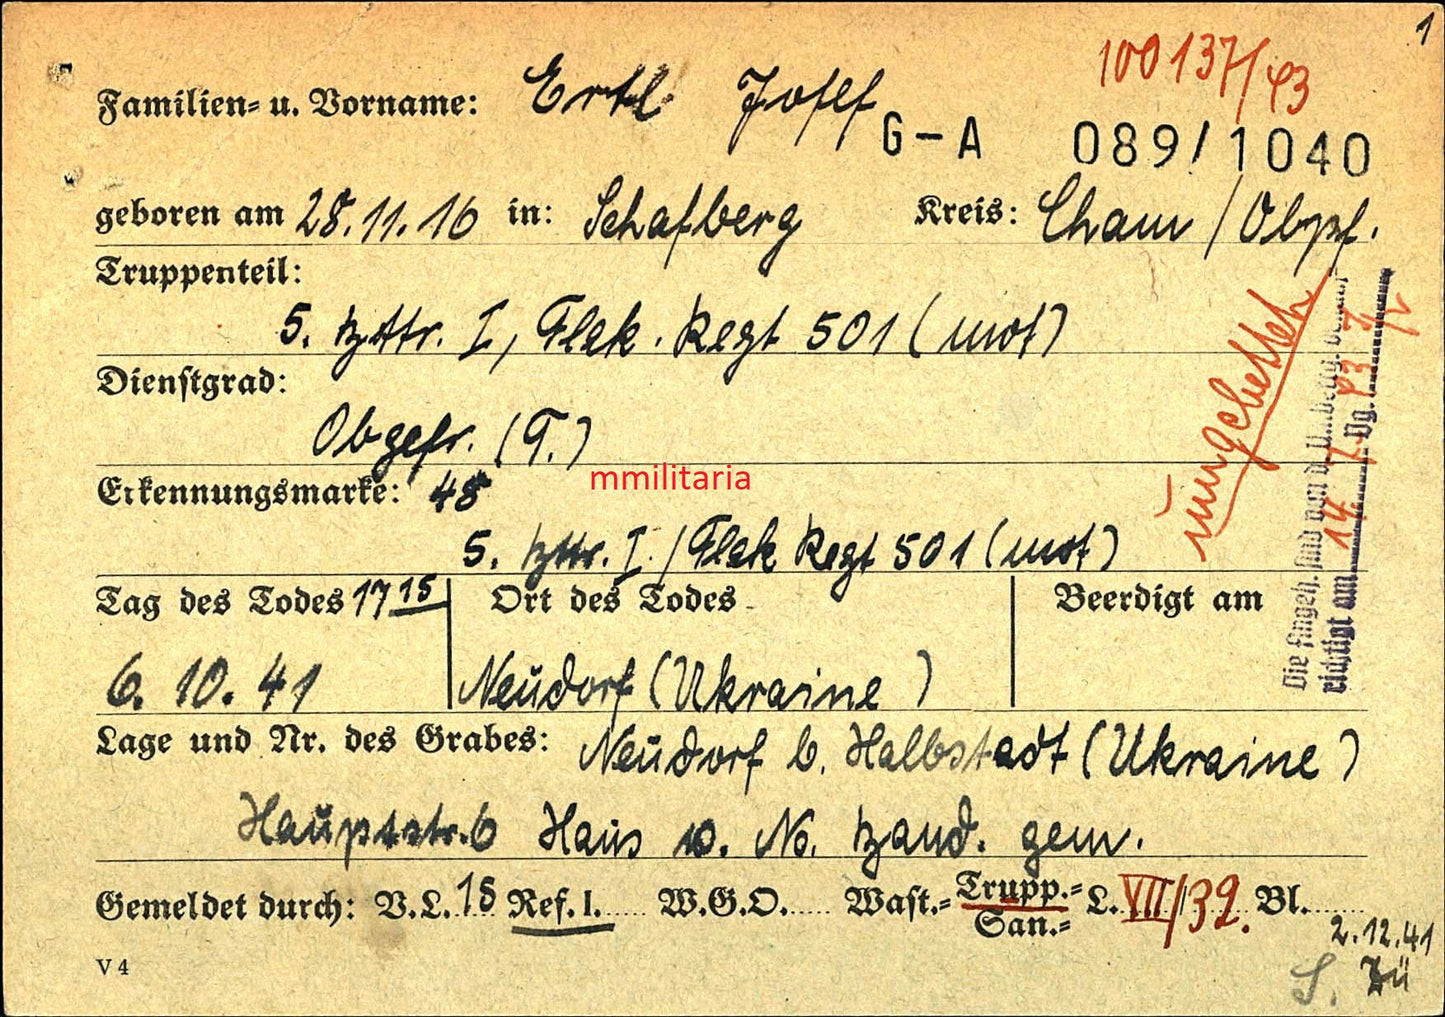 1
100137/43
Familien- u. Vorname: Ertl Josef
G-A 089/1040
geboren am 28.11.16 in: Schafberg Kreis: Cham / Obpf.
Truppenteil:
5. Bttr. I, Flak. Regt 501 (mot)
Dienstgrad:
Obgefr. (T.)
mmilitaria
Erkennungsmarke: 48
5. Bttr. I. / Flak Regt 501 (mot)
Tag des Todes 17 15 Ort des Todes Beerdigt am
6. 10. 41 Neudorf (Ukraine)
Lage und Nr. des Grabes: Neudorf b. Halbstadt (Ukraine)
Hauptstr. 6 Haus No. gem.
Gemeldet durch: V.L. 15 Ref. I. W.G.O. Wast.- Trupp.- San.- L. VII/39. Bl.
2.12.41
V 4
Die Angeh. sind
richtigt am 14